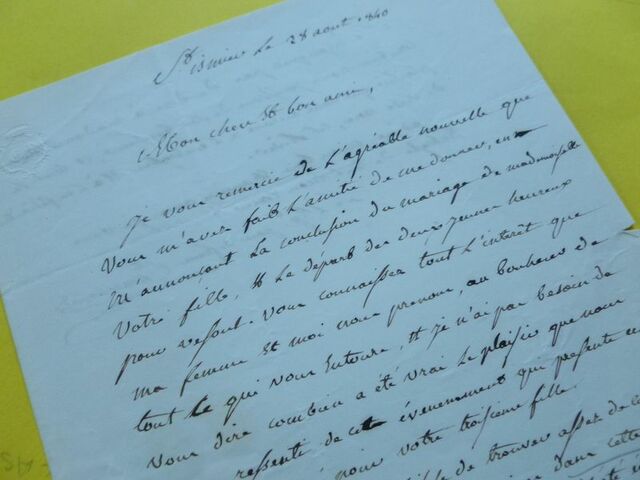 St ismier Le 28 aout 1840
Mon cher et bon ami,
Je vous remercie de L'agréable nouvelle que
vous m'avez fait L'amitié de me donner, en
m'annonçant La conclusion du mariage de mademoiselle
votre fille, et Le départ des deux jeunes heureux
pour vesoul. vous connaissez tout L'interêt que
ma femme et moi nous prenons, au bonheur de
tout ce qui vous Entoure, et je n'ai pas besoin de
vous dire combien a été vrai Le plaisir que nous
ressenti de cet évenement qui présente
pour votre troisieme fille.
de trouver assez de
dans cette